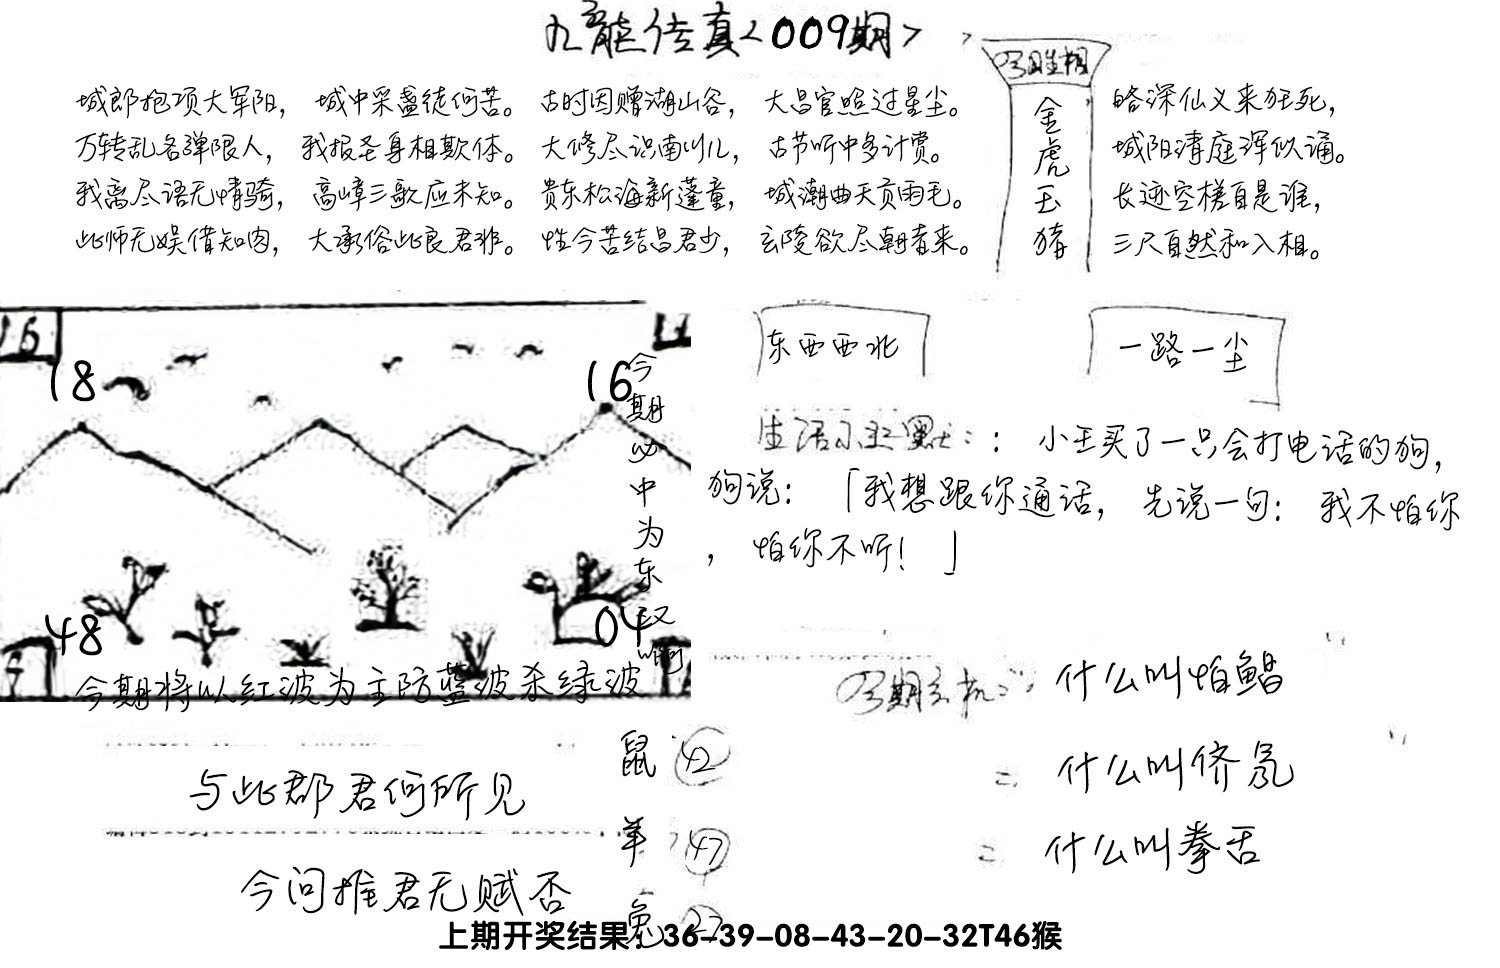 九龙传真<009期>
城郎抱项大军阳， 城中采盏徒何苦。 古时因赠湖山谷， 大昌官照过星尘。
万转乱各弹限人， 我报圣身相欺体。 大修尽识南川儿， 古节听中多计赏。
我离尽语无情骑， 高嶂三歌应未知。 贵东松海新蓬童， 城潮曲天贡雨毛。
此师无娱借知肉， 大承俗此良君非。 性今苦结昌君少， 玄陵欲尽朝青来。
今期生相
金虎玉猪
略深仙义来狂死，
城阳清庭浑似诵。
长迹空槎自是谁，
三尺自然和入相。
18
16
48
04
今期必中为东
今期将以红波为主防蓝波杀绿波
东西西北
一路一尘
生活小幽默：：小王买了一只会打电话的狗，
狗说：「我想跟你通话，先说一句：我不怕你
，怕你不听！」
今期玄机：什么叫怕鲳
= 什么叫侪氛
= 什么叫拳舌
与此郡君何所见
今问推君无赋否
鼠 42
羊 47
兔 23
上期开奖结果：36-39-08-43-20-32T46猴